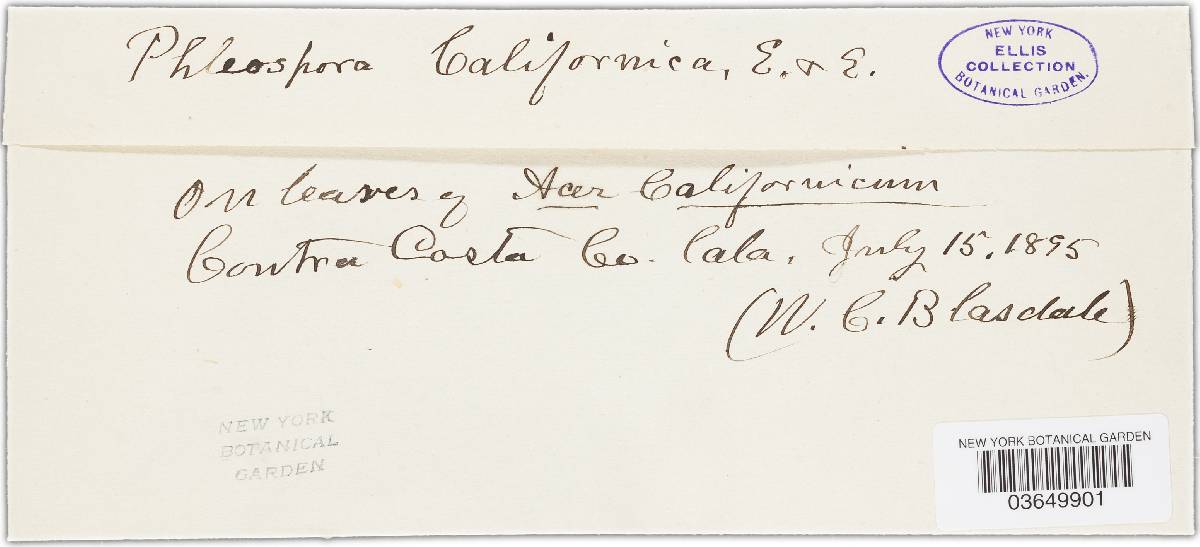 Phleospora Californica, E. & E.
NEW YORK
ELLIS
COLLECTION
BOTANICAL GARDEN.
On leaves of Acer Californicum
Contra Costa Co. Cala. July 15, 1895
(W. C. Blasdale)
NEW YORK
BOTANICAL
GARDEN
NEW YORK BOTANICAL GARDEN
03649901